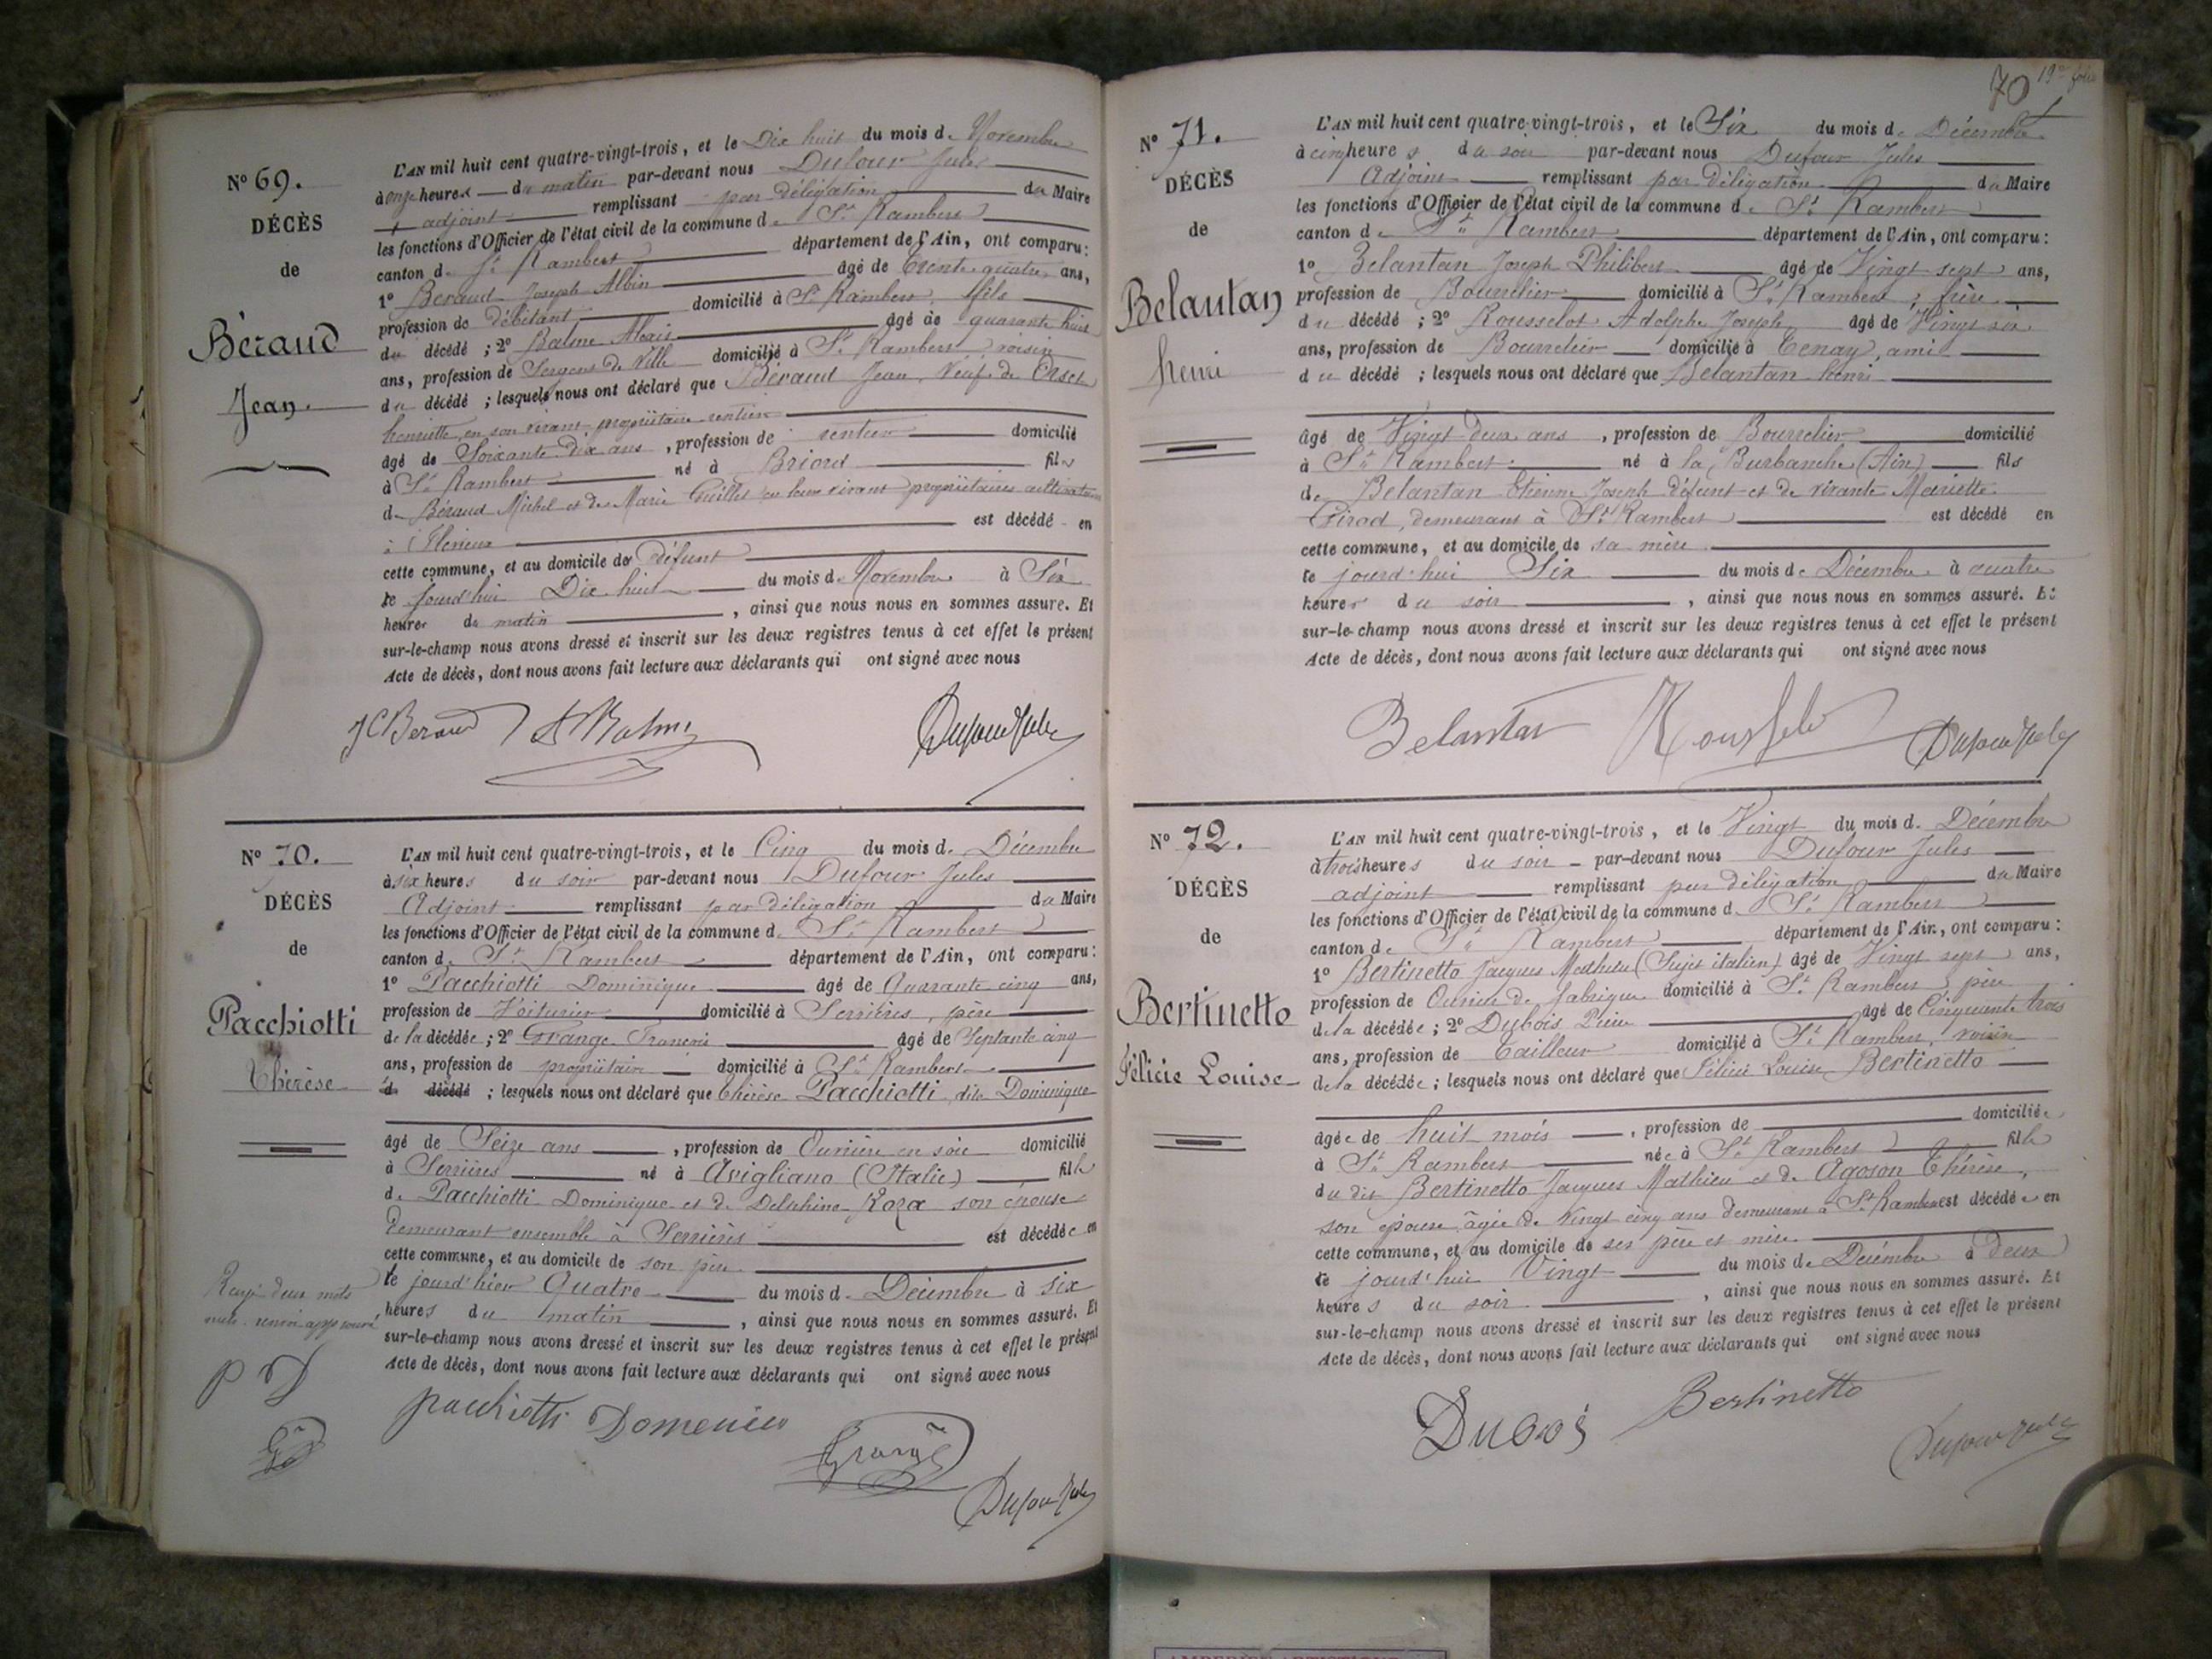 N° 69.
DÉCÈS
de
Béraud
Jean.
L'AN mil huit cent quatre-vingt-trois, et le Dix huit du mois de Novembre
à onze heures du matin par-devant nous Dufour Jules
adjoint remplissant par délégation du Maire
les fonctions d'Officier de l'état civil de la commune de St Rambert
canton de St Rambert département de l'Ain, ont comparu:
1° Beraud Joseph Albin âgé de Trente quatre ans,
profession de débitant domicilié à St Rambert, fils
du décédé; 2° Balme Alexis âgé de quarante huit
ans, profession de Sergent de Ville domicilié à St Rambert voisin
du décédé; lesquels nous ont déclaré que Béraud Jean, Veuf de Orset
henriette, en son vivant propriétaire rentier
âgé de Soixante Dix ans, profession de rentier domicilié
à St Rambert né à Briord fils
de Béraud Michel et de Marie Guillet en leur vivant propriétaires cultivateurs
à Flérieux est décédé en
cette commune, et au domicile du défunt
le jourd'hui Dix huit du mois de Novembre à Six
heures du matin, ainsi que nous nous en sommes assuré. Et
sur-le-champ nous avons dressé et inscrit sur les deux registres tenus à cet effet le présent
Acte de décès, dont nous avons fait lecture aux déclarants qui ont signé avec nous
JC Beraud A Balme Dufour Jules
N° 70.
DÉCÈS
de
Pacchiotti
Thérèse
L'AN mil huit cent quatre-vingt-trois, et le Cinq du mois de Décembre
à six heures du soir par-devant nous Dufour Jules
Adjoint remplissant par délégation du Maire
les fonctions d'Officier de l'état civil de la commune de St Rambert
canton de St Rambert département de l'Ain, ont comparu:
1° Pacchiotti Dominique âgé de Quarante cinq ans,
profession de Voiturier domicilié à Serrières, père
de la décédée; 2° Grange François âgé de Septante cinq
ans, profession de propriétaire domicilié à St Rambert
d décédé; lesquels nous ont déclaré que Thérèse Pacchiotti, dite Dominique
âgé de Seize ans, profession de Ouvrière en soie domicilié
à Serrières né à Avigliano (Italie) fille
de Pacchiotti Dominique et de Delphine Roza son épouse
demeurant ensemble à Serrières est décédée en
cette commune, et au domicile de son père
le jourd'hier Quatre du mois de Décembre à six
heures du matin, ainsi que nous nous en sommes assuré. Et
sur-le-champ nous avons dressé et inscrit sur les deux registres tenus à cet effet le présent
Acte de décès, dont nous avons fait lecture aux déclarants qui ont signé avec nous
Rayé deux mots
nuls renvoi approuvé
P D
pacchiotti Domenico
Grange
Dufour Jules
70 19e folio
N° 71.
DÉCÈS
de
Belantan
henri
L'AN mil huit cent quatre-vingt-trois, et le Six du mois de Décembre
à cinq heures du soir par-devant nous Dufour Jules
Adjoint remplissant par délégation du Maire
les fonctions d'Officier de l'état civil de la commune de St Rambert
canton de St Rambert département de l'Ain, ont comparu:
1° Belantan Joseph Philibert âgé de Vingt sept ans,
profession de Bourrelier domicilié à St Rambert; frère
du décédé; 2° Rousselot Adolphe Joseph âgé de Vingt six
ans, profession de Bourrelier domicilié à Tenay, ami
du décédé; lesquels nous ont déclaré que Belantan henri
âgé de Vingt deux ans, profession de Bourrelier domicilié
à St Rambert né à la Burbanche (Ain) fils
de Belantan Etienne Joseph défunt et de vivante Mariette
Girod, demeurant à St Rambert est décédé en
cette commune, et au domicile de sa mère
le jourd'hui Six du mois de Décembre à quatre
heures du soir, ainsi que nous nous en sommes assuré. Et
sur-le-champ nous avons dressé et inscrit sur les deux registres tenus à cet effet le présent
Acte de décès, dont nous avons fait lecture aux déclarants qui ont signé avec nous
Belantan Dufour Jules
N° 72.
DÉCÈS
de
Bertinetto
Félicie Louise
L'AN mil huit cent quatre-vingt-trois, et le Vingt du mois de Décembre
à trois heures du soir par-devant nous Dufour Jules
adjoint remplissant par délégation du Maire
les fonctions d'Officier de l'état civil de la commune de St Rambert
canton de St Rambert département de l'Ain, ont comparu:
1° Bertinetto Jacques Mathieu (Sujet italien) âgé de Vingt sept ans,
profession de Ouvrier de fabrique domicilié à St Rambert, père
de la décédée; 2° Dubois Pierre âgé de Cinquante trois
ans, profession de Tailleur domicilié à St Rambert, voisin
de la décédée; lesquels nous ont déclaré que Félicie Louise Bertinetto
âgée de huit mois, profession de domiciliée
à St Rambert née à St Rambert fille
du dit Bertinetto Jacques Mathieu et de Agoson Thérèse,
son épouse, âgée de Vingt cinq ans demeurant à St Rambert est décédée en
cette commune, et au domicile de ses père et mère
le jourd'hui Vingt du mois de Décembre à deux
heures du soir, ainsi que nous nous en sommes assuré. Et
sur-le-champ nous avons dressé et inscrit sur les deux registres tenus à cet effet le présent
Acte de décès, dont nous avons fait lecture aux déclarants qui ont signé avec nous
Dubois Bertinetto
Dufour Jules